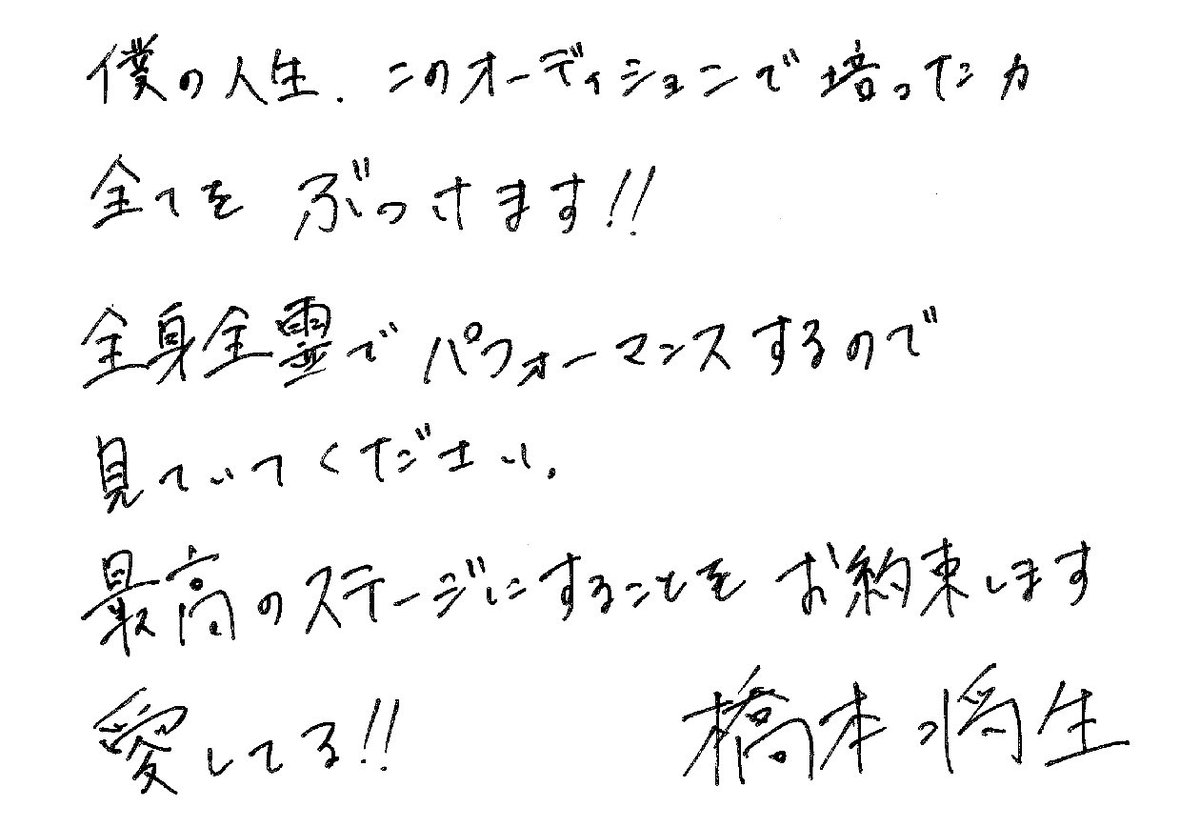 僕の人生、このオーディションで培った力
全てを ぶつけます!!
全身全霊で パフォーマンスするので
見ていてください。
最高のステージにすることを お約束します
愛してる!! 橋本 将生